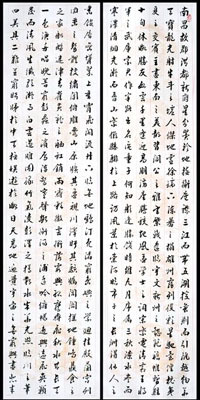 南昌故郡洪都新府星分翼軫地接衡廬襟三江而帶五湖控蠻荊而引甌越物華
天寶龍光射牛斗之墟人傑地靈徐孺下陳蕃之榻雄州霧列俊彩星馳臺隍枕夷夏之
交賓主盡東南之美都督閻公之雅望棨戟遙臨宇文新州之懿範襜帷暫駐
十旬休暇勝友如雲千里逢迎高朋滿座騰蛟起鳳孟學士之詞宗紫電清霜王將
軍之武庫家君作宰路出名區童子何知躬逢勝餞時維九月序屬三秋潦水盡而寒
潭清煙光凝而暮山紫儼驂騑於上路訪風景於崇阿臨帝子之長洲得仙人之
舊館層巒聳翠上出重霄飛閣流丹下臨無地鶴汀鳧渚窮島嶼之縈迴桂殿蘭宮列
岡巒之體勢披繡闥俯雕甍山原曠其盈視川澤紆其駭矚閭閻撲地鐘鳴鼎食
之家舸艦迷津青雀黃龍之舳虹銷雨霽彩徹雲衢落霞與孤鶩齊飛秋水共長天
一色漁舟唱晚響窮彭蠡之濱雁陣驚寒聲斷衡陽之浦遙吟俯暢逸興遄飛爽籟
發而清風生纖歌凝而白雲遏睢園綠竹氣凌彭澤之樽鄴水朱華光照臨川之筆
四美具二難並窮睇眄於中天極娛遊於暇日天高地迥覺宇宙之無窮興盡悲來